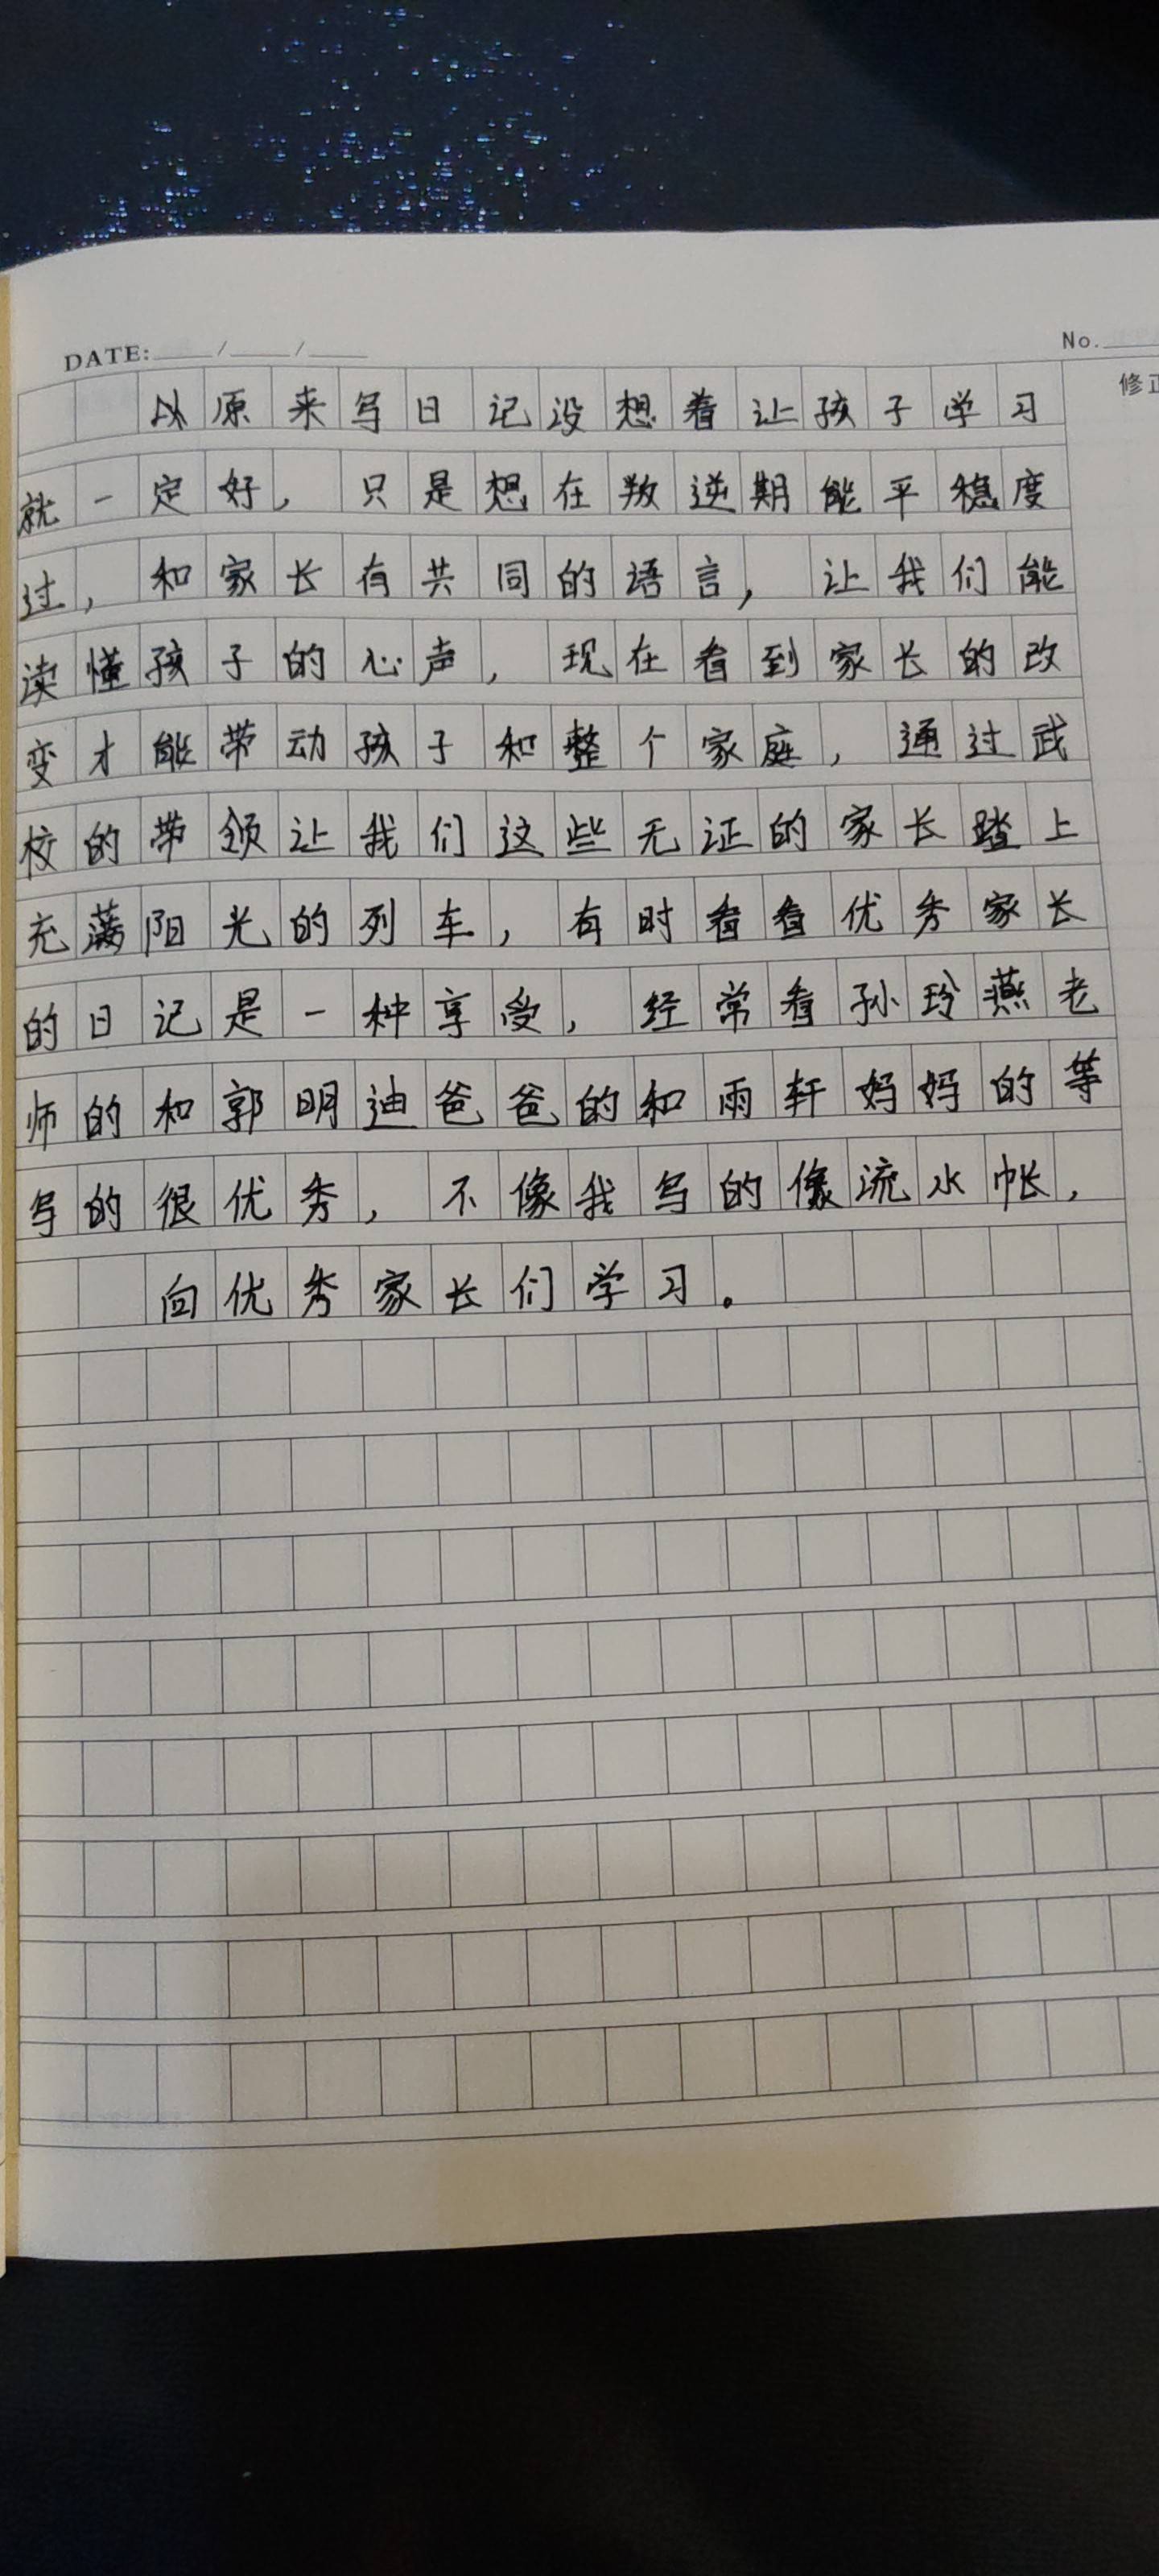 DATE: / /
No.
修正
以原来写日记没想着让孩子学习
就一定好，只是想在叛逆期能平稳度
过，和家长有共同的语言，让我们能
读懂孩子的心声，现在看到家长的改
变才能带动孩子和整个家庭，通过武
校的带领让我们这些无证的家长踏上
充满阳光的列车，有时看看优秀家长
的日记是一种享受，经常看孙玲燕老
师的和郭明迪爸爸的和雨轩妈妈的等
写的很优秀，不像我写的像流水帐，
向优秀家长们学习。